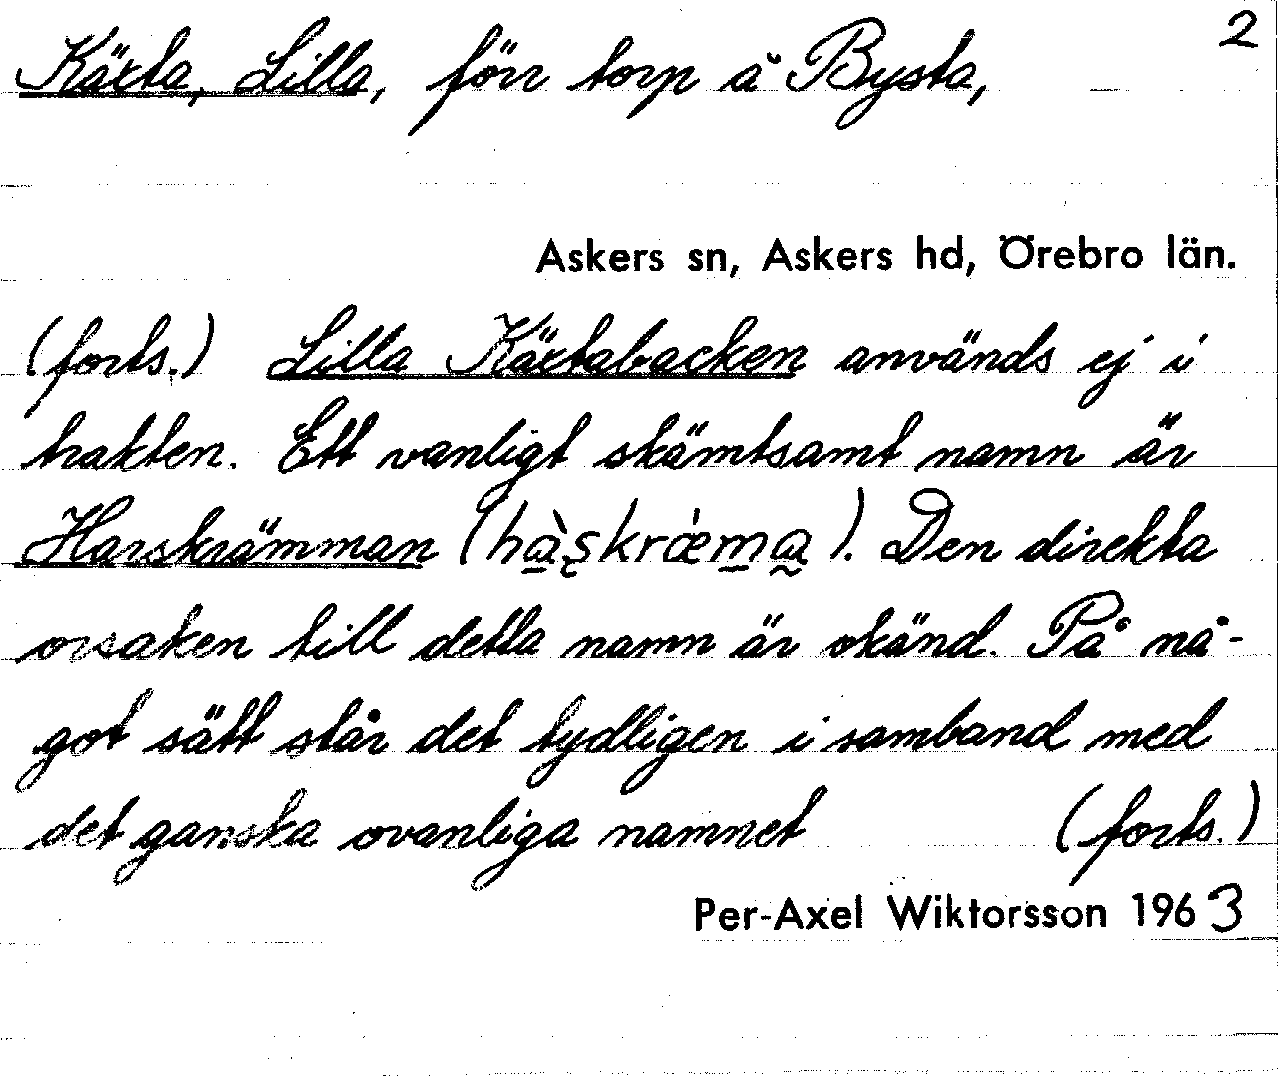 Kärta, Lilla, förr torp å Bysta, 2
Askers sn, Askers hd, Örebro län.
(forts.) Lilla Kärtabacken används ej i
trakten. Ett vanligt skämtsamt namn är
Harskrämman (hàʂkræ̀ma). Den direkta
orsaken till detta namn är okänd. På nå-
got sätt står det tydligen i samband med
det ganska ovanliga namnet (forts.)
Per-Axel Wiktorsson 1963